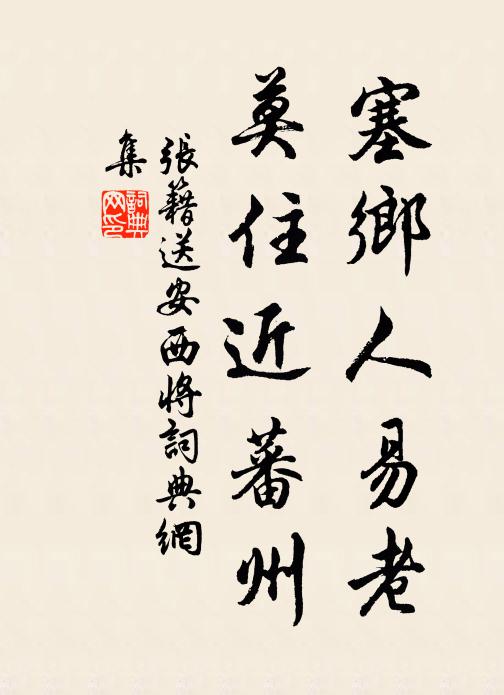 塞鄉人易老
莫住近蕃州
張籍送安西將詞典網
集
詞典
网印